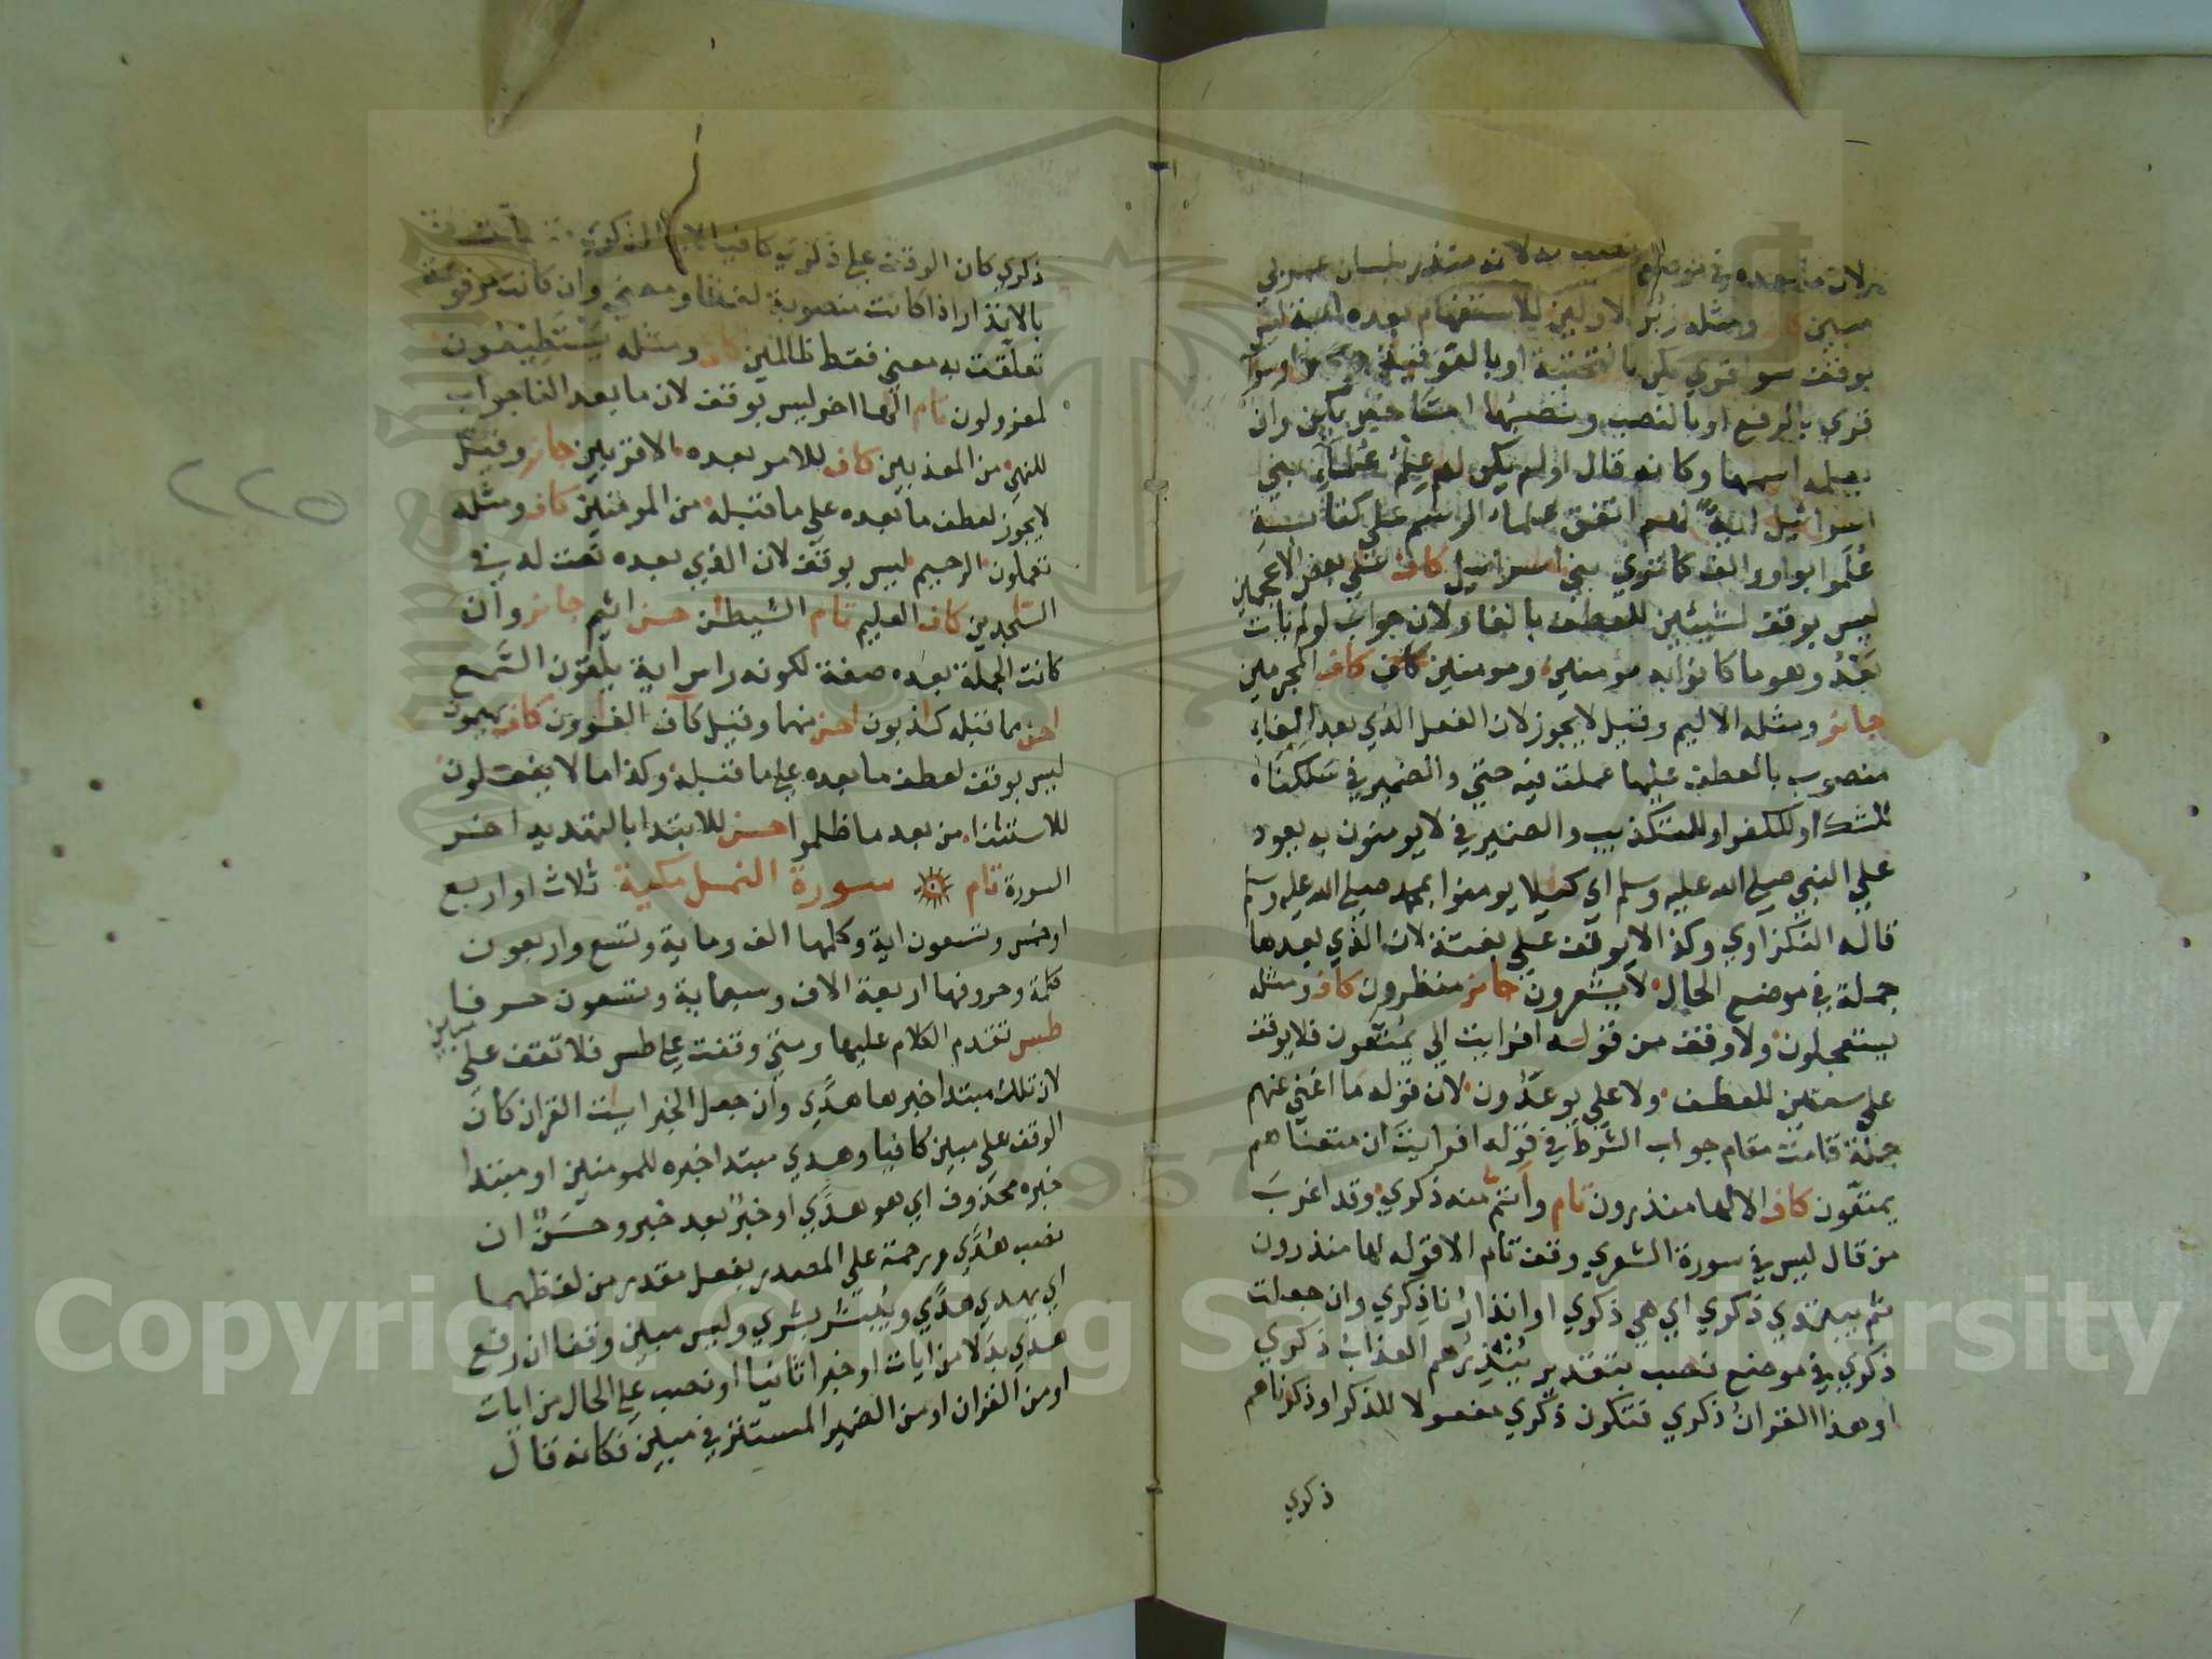 مبين كاف ومثله زبر الاولين للاستفهام بعده اية ليس
بوقف سوا قري يكن بالتحتية او بالفوقية وسوا
قري بالرفع او بالنصب ونصبها احتا خبر يكن وان
يعلمه اسمها وكانه قال اولم يكن لهم علم علماء بني
اسرائيل اية نعم اتفق علماء الرسم على كتابة
علموا بواو والف كما تري بني اسرائيل كاف علي بعض الاعجمين
ليس بوقف لشيئين للعطف بالفا ولان جواب لو لم يات
بعد وهو ما كانوا به مؤمنين ومومنين كاف المجرمين
جائز ومثله الاليم وقيل لا يجوز لان الفعل الذي بعد الفاء
منصوب بالعطف عليها عملت فيه حتي والضمير في سلكناه
للشك او للكفر او للتكذيب والضمير في لا يومنون به يعود
علي النبي صلي الله عليه وسلم اي كيلا يومنوا بمحمد صلي الله عليه وسلم
قاله النكزاوي وكذا لا يوقف علي بغتة لان الذي بعدها
جملة في موضع الحال لا يشعرون جائز منظرون كاف ومثله
يستعجلون ولا وقف من قوله افرايت الي يمتعون فلا يوقف
علي سنين للعطف ولا علي يوعدون لان قوله ما اغني عنهم
جملة قامت مقام جواب الشرط في قوله افرايت ان متعناهم
يمتعون كاف الا لها منذرون تام وانتم منه ذكري وقد اغرب
من قال ليس في سورة الشعري وقف تام الا قوله لها منذرون
ثم يبتدي ذكري اي هي ذكري او انذارنا ذكري وان جعلت
ذكري في موضع نصب بتقدير ينذرهم العذاب ذكري
او هذا القران ذكري فتكون ذكري مفعولا للذكر او ذكرناهم
ذكري
ذكري كان الوقف علي ذكري كافيا
بالانذار اذا كانت منصوبة لفظا ومعني وان كانت مرفوعة
تعلقت به معني فقط ظالمين كاف ومثله يستطيعون
لمعزولون تام الها اخر ليس بوقف لان ما بعد الفا جواب
للنهي من المعذبين كاف للامر بعده الاقربين جائز وقيل
لا يجوز لعطف ما بعده علي ما قبله من المومنين كاف ومثله
تعملون الرحيم ليس بوقف لان الذي بعده نعت له في
الساجدين كاف العليم تام الشيطين حسن اثيم جائز وان
كانت الجملة بعده صفة لكونه راس اية يلقون السمع
احسن مما قبله كاذبون احسن منهما وقيل كاف الغاوون كاف يهيمون
ليس بوقف لعطف ما بعده علي ما قبله وكذا ما لا يفعلون
للاستثناء من بعد ما ظلموا احسن للابتدا بالتهديد اخر
السورة تام سورة النمل مكية ثلاث او اربع
او خمس وتسعون اية وكلمها الف وماية وتسع واربعون
كلمة وحروفها اربعة الاف وسبعماية وتسعون حرفا
طس تقدم الكلام عليها ومتي وقفت علي طس فلا تقف علي مبين
لان تلك مبتدا خبرها هدي وان جعل الخبر ايات القران كان
الوقف علي مبين كافيا وهدي مبتدا خبره للمومنين او مبتدا
خبره محذوف اي هو هدي او خبر بعد خبر وحسن ان
نصب هدي ورحمة علي المصدر بفعل مقدر من لفظهما
اي يهدي هدي ويبشر بشري وليس مبين وقفا ان رفع
هدي بدلا من ايات او خبرا ثانيا او نصب علي الحال من ايات
او من القران او من الضمير المستتر في مبين فكانه قال
٢٢٥
Copyright © King Saud University
1957